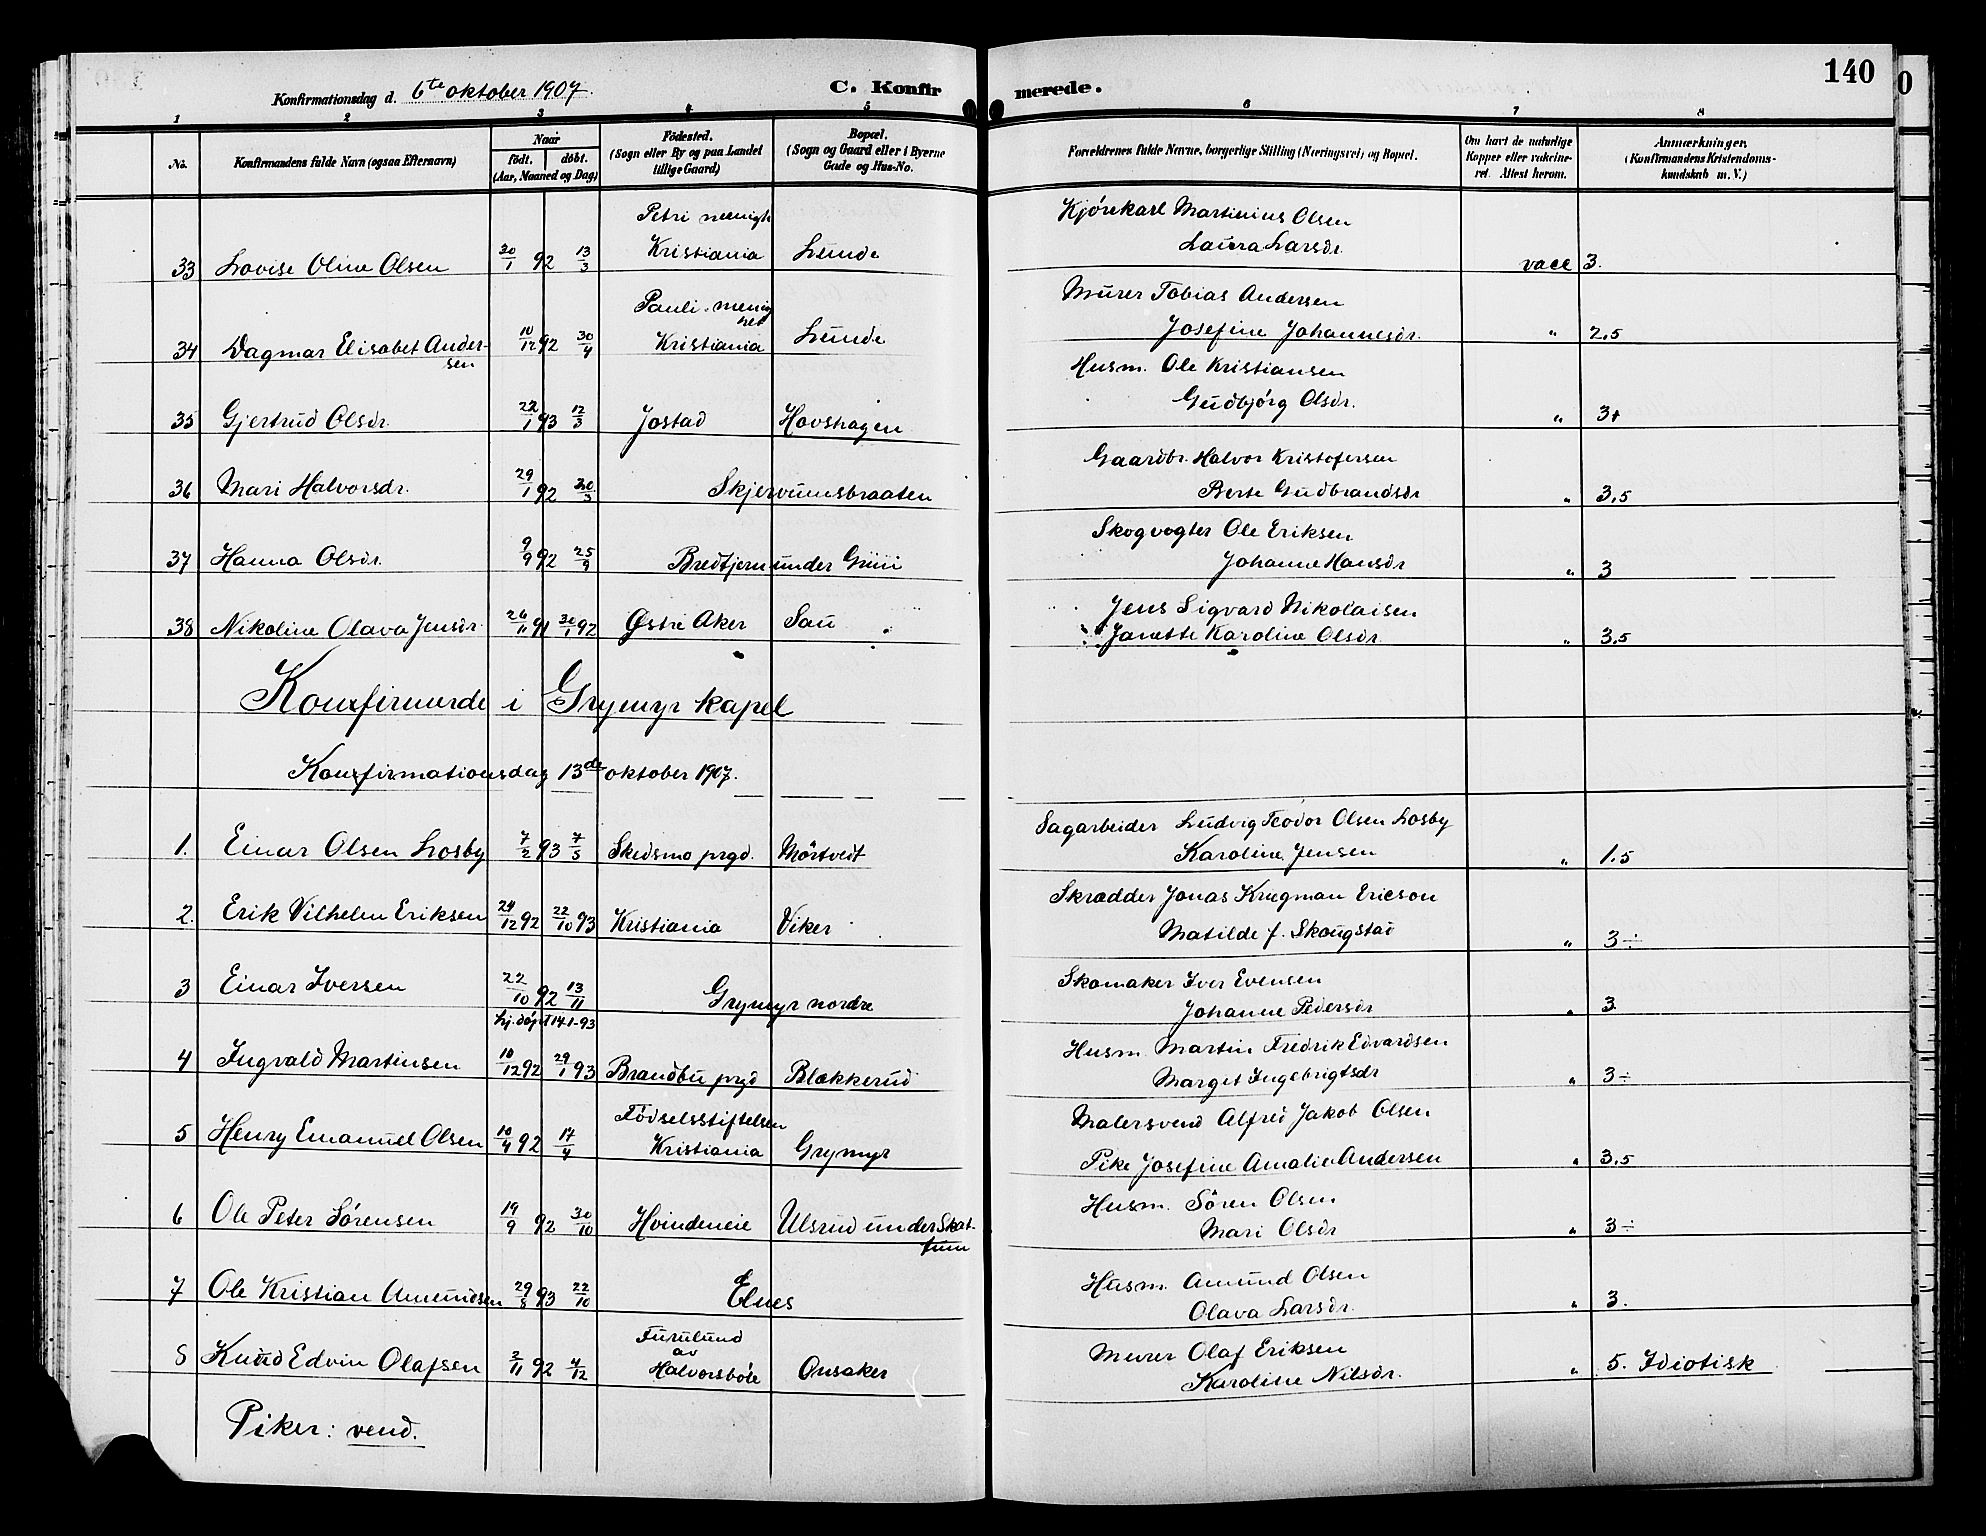 140
Konfirmationsdag d. 6te oktober 1907. C. Konfirmerede.
1 2 3 4 5 6 7 8
No. Konfirmandens fulde Navn (ogsaa Efternavn) Naar født. døbt. (Aar, Maaned og Dag) Fødested. (Sogn eller By og paa Landet tillige Gaard) Bopæl. (Sogn og Gaard eller i Byerne Gade og Hus-No. Forældrenes fulde Navne, borgerlige Stilling (Næringsvei) og Bopæl. Om havt de naturlige Kopper eller vakcineret. Attest herom. Anmærkninger. (Konfirmandens Kristendomskundskab m. V.)
Petri menigh Kjørekarl Martinius Olsen
33 Lovise Oline Olsen 30/1 92 13/3 Kristiania Lunde Laura Larsdr. vacc 3.
Pauli menighet Murer Tobias Andersen
34 Dagmar Elisabet Andersen 10/12 92 30/4 Kristiania Lunde Josefine Johannesdr. " 2,5
Husm. Ole Kristiansen
35 Gjertrud Olsdr. 22/1 93 12/3 Jostad Hovshagen Gudbjørg Olsdr. " 3+
Gaardbr. Halvor Kristofersen
36 Mari Halvorsdr. 29/1 92 20/3 Skjervumsbraaten Berte Gudbrandsdr " 3,5
Skogvogter Ole Eriksen
37 Hanna Olsdr. 9/9 92 25/9 Bredtjern under Grini Johanne Hansdr " 3
Jens Sigvard Nikolaisen
38 Nikoline Olava Jensdr. 26/11 91 30/1 92 Østre Aker Sau Janette Karoline Olsdr. " 3,5
Konfirmerde i Grymyr kapel
Konfirmationsdag 13de oktober 1907.
Sagarbeider Ludvig Teodor Olsen Losby
1. Einar Olsen Losby 7/2 93 7/5 Skedsmo prgd. Mørtvedt Karoline Jensen " 1.5
Skrædder Jonas Krugman Ericson
2. Erik Vilhelm Eriksen 24/12 92 22/10 93 Kristiania Viker Matilde f. Skougstad " 3÷
Skomaker Iver Evensen
3 Einar Iversen 22/10 92 13/11 Grymyr nordre Johanne Pedersdr " 3
hj.døpt 14.1-93
Husm. Martin Fredrik Edvardsen
4 Ingvald Martinsen 10/12 92 29/1 93 Brandbu prgd Blækkerud Marget Ingebrigtsdr " 3÷
Fødselsstiftelsen Malersvend Alfred Jakob Olsen
5 Henry Emanuel Olsen 10/4 92 17/4 Kristiania Grymyr Pike Josefine Amalie Andersen " 3,5
Husm. Søren Olsen
6 Ole Peter Sørensen 19/9 92 30/10 Hvindeneie Ulsrud under Skattum Mari Olsdr " 3÷
Husm. Amund Olsen
7 Ole Kristian Amundsen 29/8 93 22/10 Elnes Olava Larsdr. " 3.
Furulund av Halvorsbøle Murer Olaf Eriksen
8 Knud Edvin Olafsen 3/11 92 4/12 Onsaker Karoline Nilsdr. " 5. Idiotisk
Piker: vend.